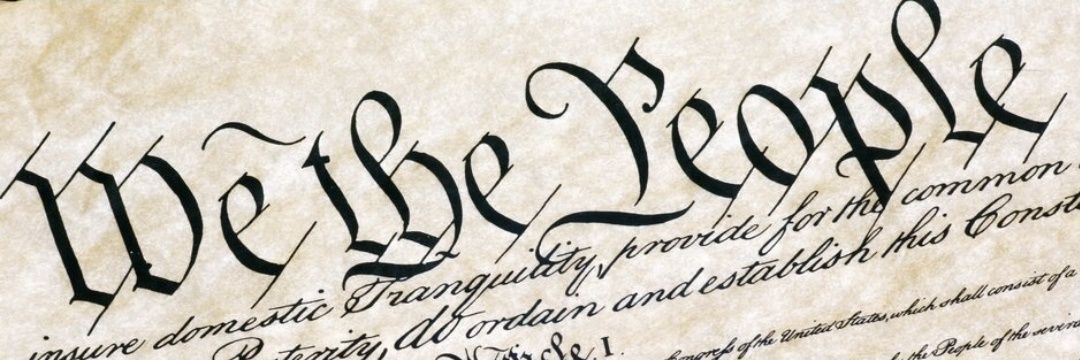 We the People
insure domestic Tranquility, provide for the common
Posterity, do ordain and establish this
Article. I.
Congress of the United States, which shall consist of a
by the People of the several